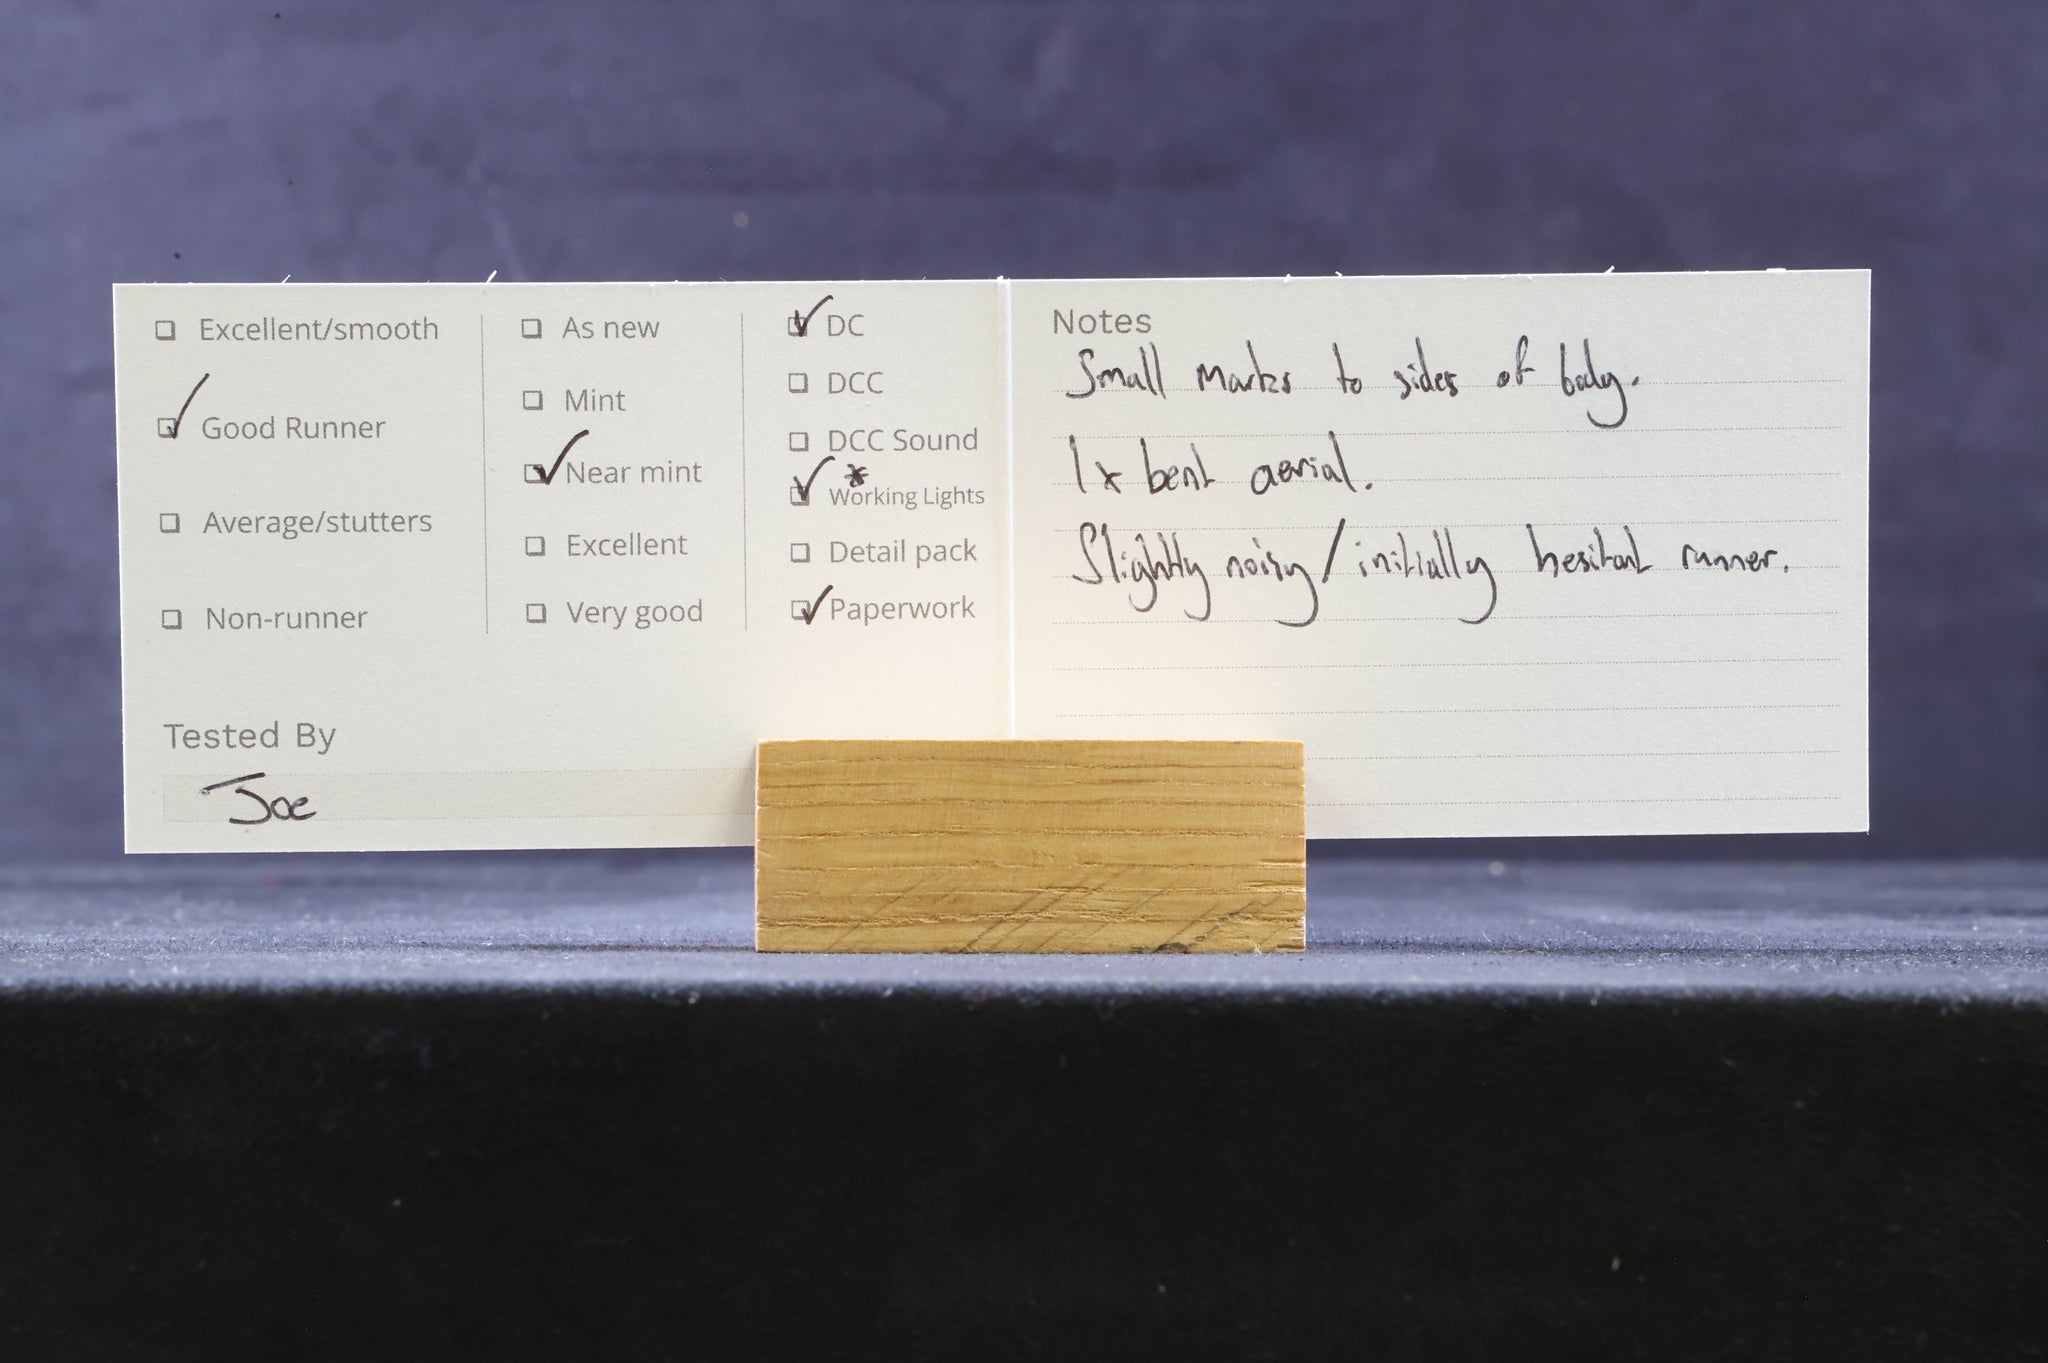 ☐ Excellent/smooth
☑ Good Runner
☐ Average/stutters
☐ Non-runner
☐ As new
☐ Mint
☑ Near mint
☐ Excellent
☐ Very good
☑ DC
☐ DCC
☐ DCC Sound
☑ Working Lights *
☐ Detail pack
☑ Paperwork
Tested By
Joe
Notes
Small marks to sides of body.
1x bent aerial.
Slightly noisy/initially hesitant runner.